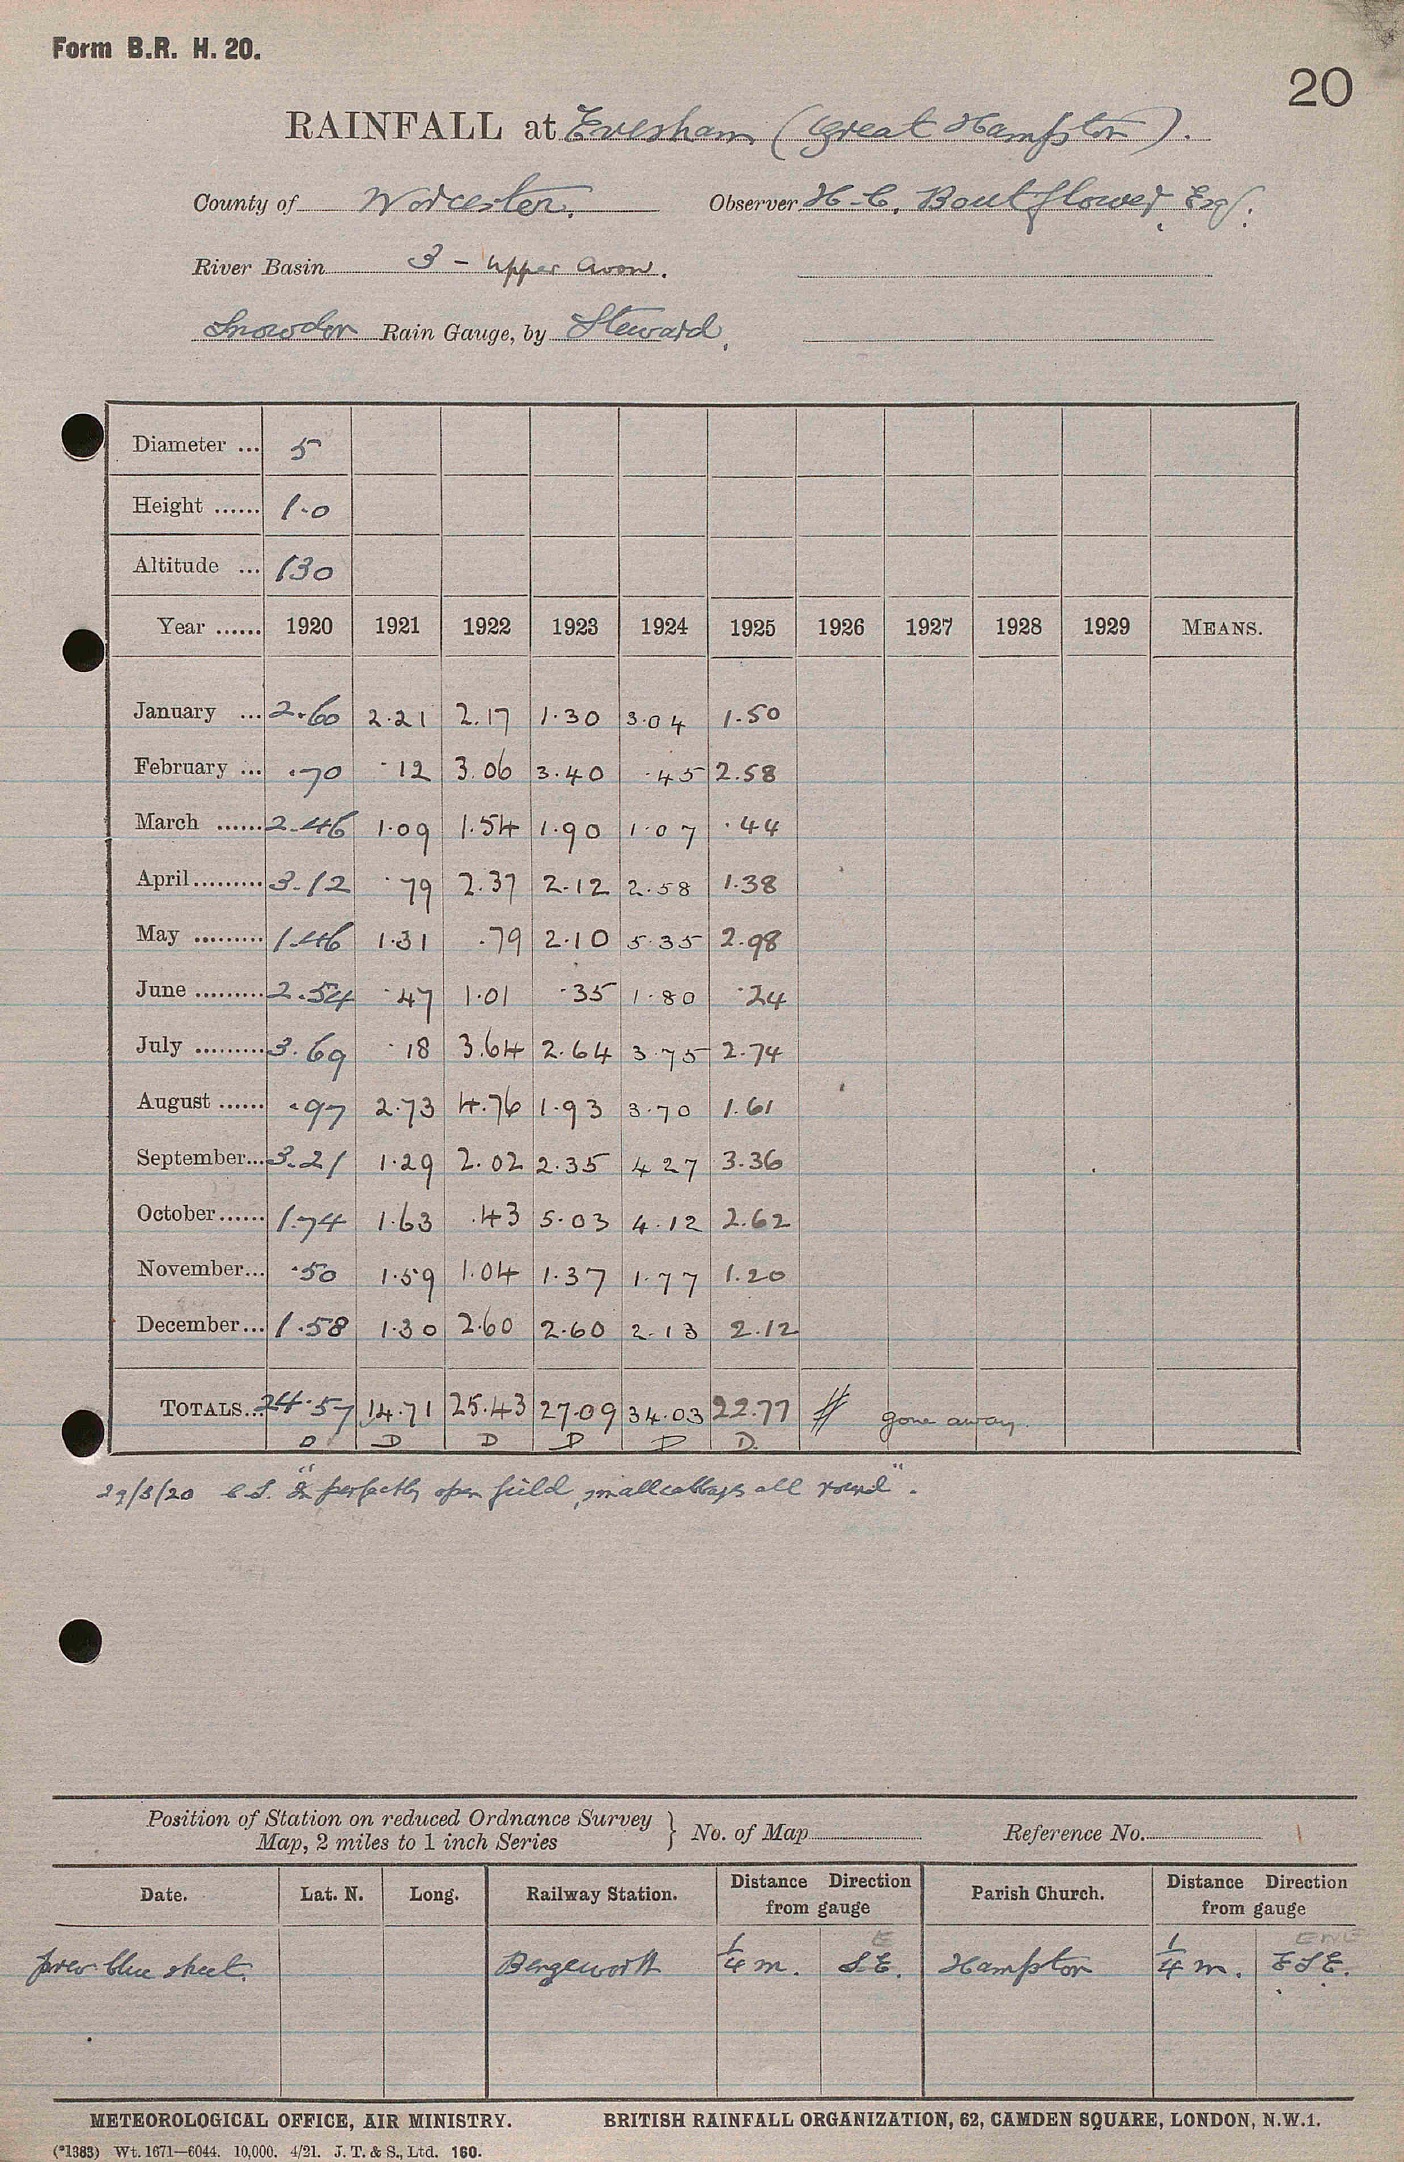 Form B.R. H. 20.
20
RAINFALL at Evesham (Great Hampton).
County of Worcester. Observer H. C. Boutflower, Esq.
River Basin 3 - Upper Avon.
Snowdon Rain Gauge, by Steward.
Diameter ... 5
Height ...... 1.0
Altitude ... 130
Year ...... 1920 1921 1922 1923 1924 1925 1926 1927 1928 1929 MEANS.
January ... 2.60 2.21 2.17 1.30 3.04 1.50
February ... .70 .12 3.06 3.40 .45 2.58
March ...... 2.46 1.09 1.54 1.90 1.07 .44
April ......... 3.12 .79 2.37 2.12 2.58 1.38
May ......... 1.46 1.31 .79 2.10 5.35 2.98
June ......... 2.54 .47 1.01 .35 1.80 .24
July ......... 3.69 .18 3.64 2.64 3.75 2.74
August ...... .97 2.73 4.76 1.93 3.70 1.61
September... 3.21 1.29 2.02 2.35 4.27 3.36
October...... 1.74 1.63 .43 5.03 4.12 2.62
November... .50 1.59 1.04 1.37 1.77 1.20
December... 1.58 1.30 2.60 2.60 2.13 2.12
TOTALS... 24.57 14.71 25.43 27.09 34.03 22.77 # gone away.
D D D D D D.
29/3/20 C.S. "In perfectly open field, small cabbages all round".
Position of Station on reduced Ordnance Survey
Map, 2 miles to 1 inch Series } No. of Map Reference No.
Date. Lat. N. Long. Railway Station. Distance Direction from gauge Parish Church. Distance Direction from gauge
E ENE
prev blue sheet. Bengeworth 1/4 m. S.E. Hampton 1/4 m. ESE.
METEOROLOGICAL OFFICE, AIR MINISTRY. BRITISH RAINFALL ORGANIZATION, 62, CAMDEN SQUARE, LONDON, N.W.1.
(*1383) Wt. 1671—6044. 10,000. 4/21. J. T. & S., Ltd. 160.